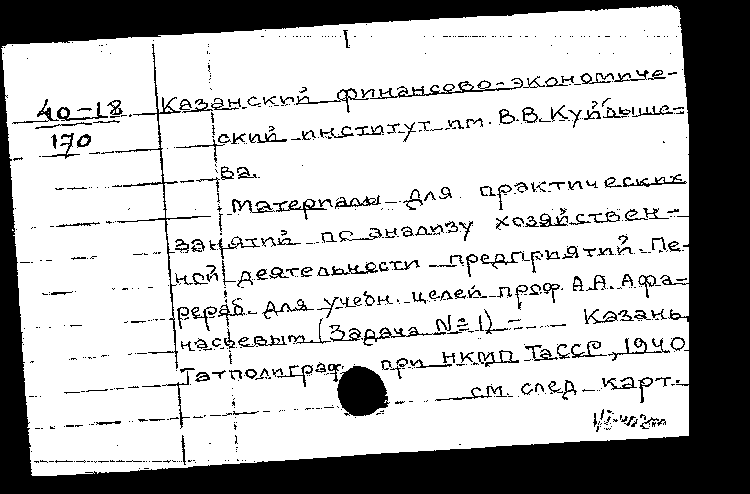 I
40-18
170
Казанский финансово-экономиче-
ский институт им. В.В. Куйбыше-
ва.
Материалы для практических
занятий по анализу хозяйствен-
ной деятельности предприятий. Пе-
рераб. для учебн. целей проф. А.А. Афа-
насьевым (Задача №1) – Казань,
Татполиграф при НКМП ТаССР, 1940
см. след. карт.